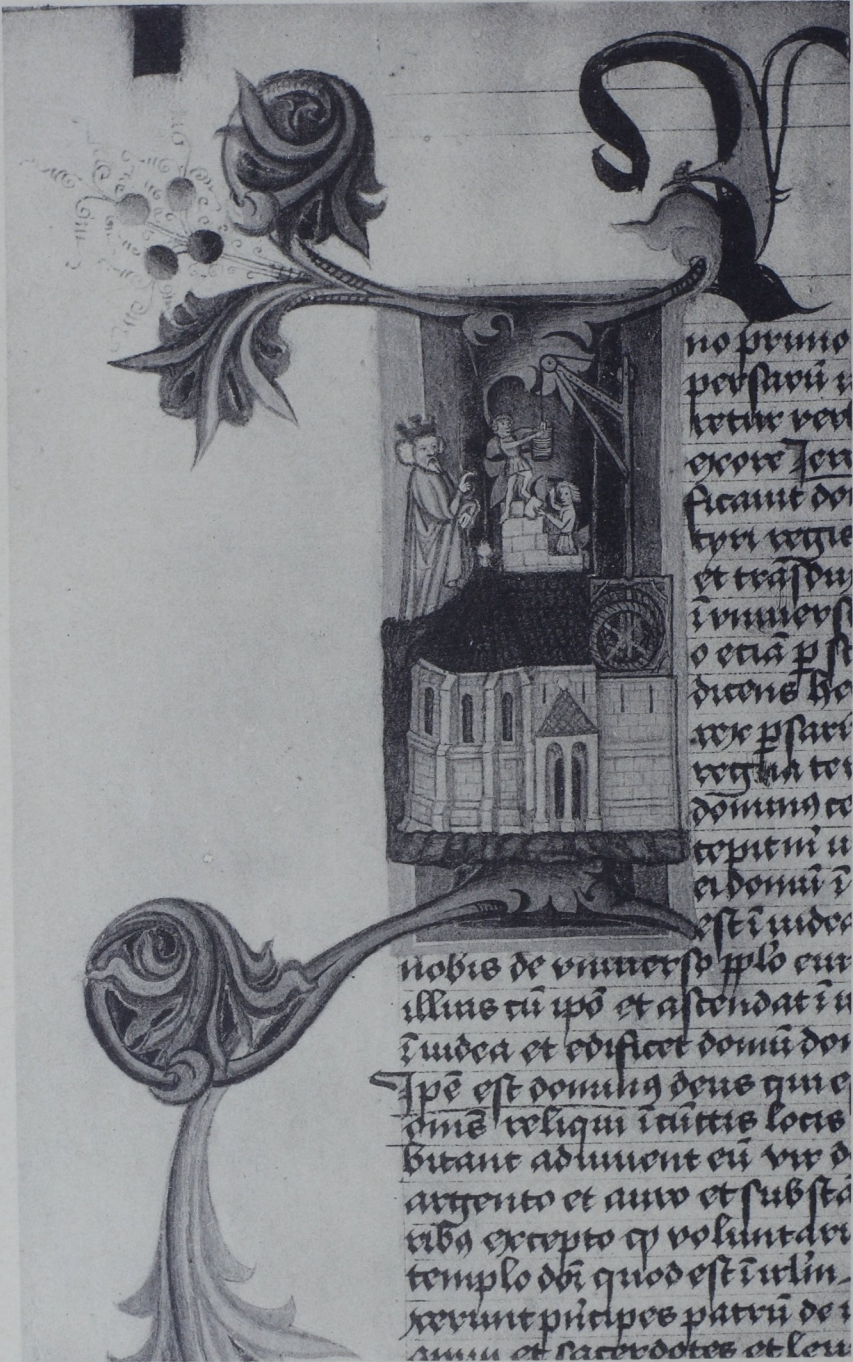 no primo
persarū u
retur ver
exore Jere
ficauit do
cyri regis
et trāsdu
ī vniuers
o eciā ꝑ sc
dicens he
rex ꝑsar
regna ter
dominꝰ ce
cepit m̄ u
ei domū ī
est ī iudea
nobis de vniuerso pp̄lo eiu
illius cū ipō et ascendat ī i
ī iudea et edificet domū do
Ipē est dominꝰ deus qui e
om̄s reliqui ī cūctis locis
bitant adiuuent eū vir d
argento et auro et substā
ribꝰ excepto q voluntari
templo dōi quod est ī irl̄m
rerunt p̄ncipes patrū de i
amin et sacerdotes et leui